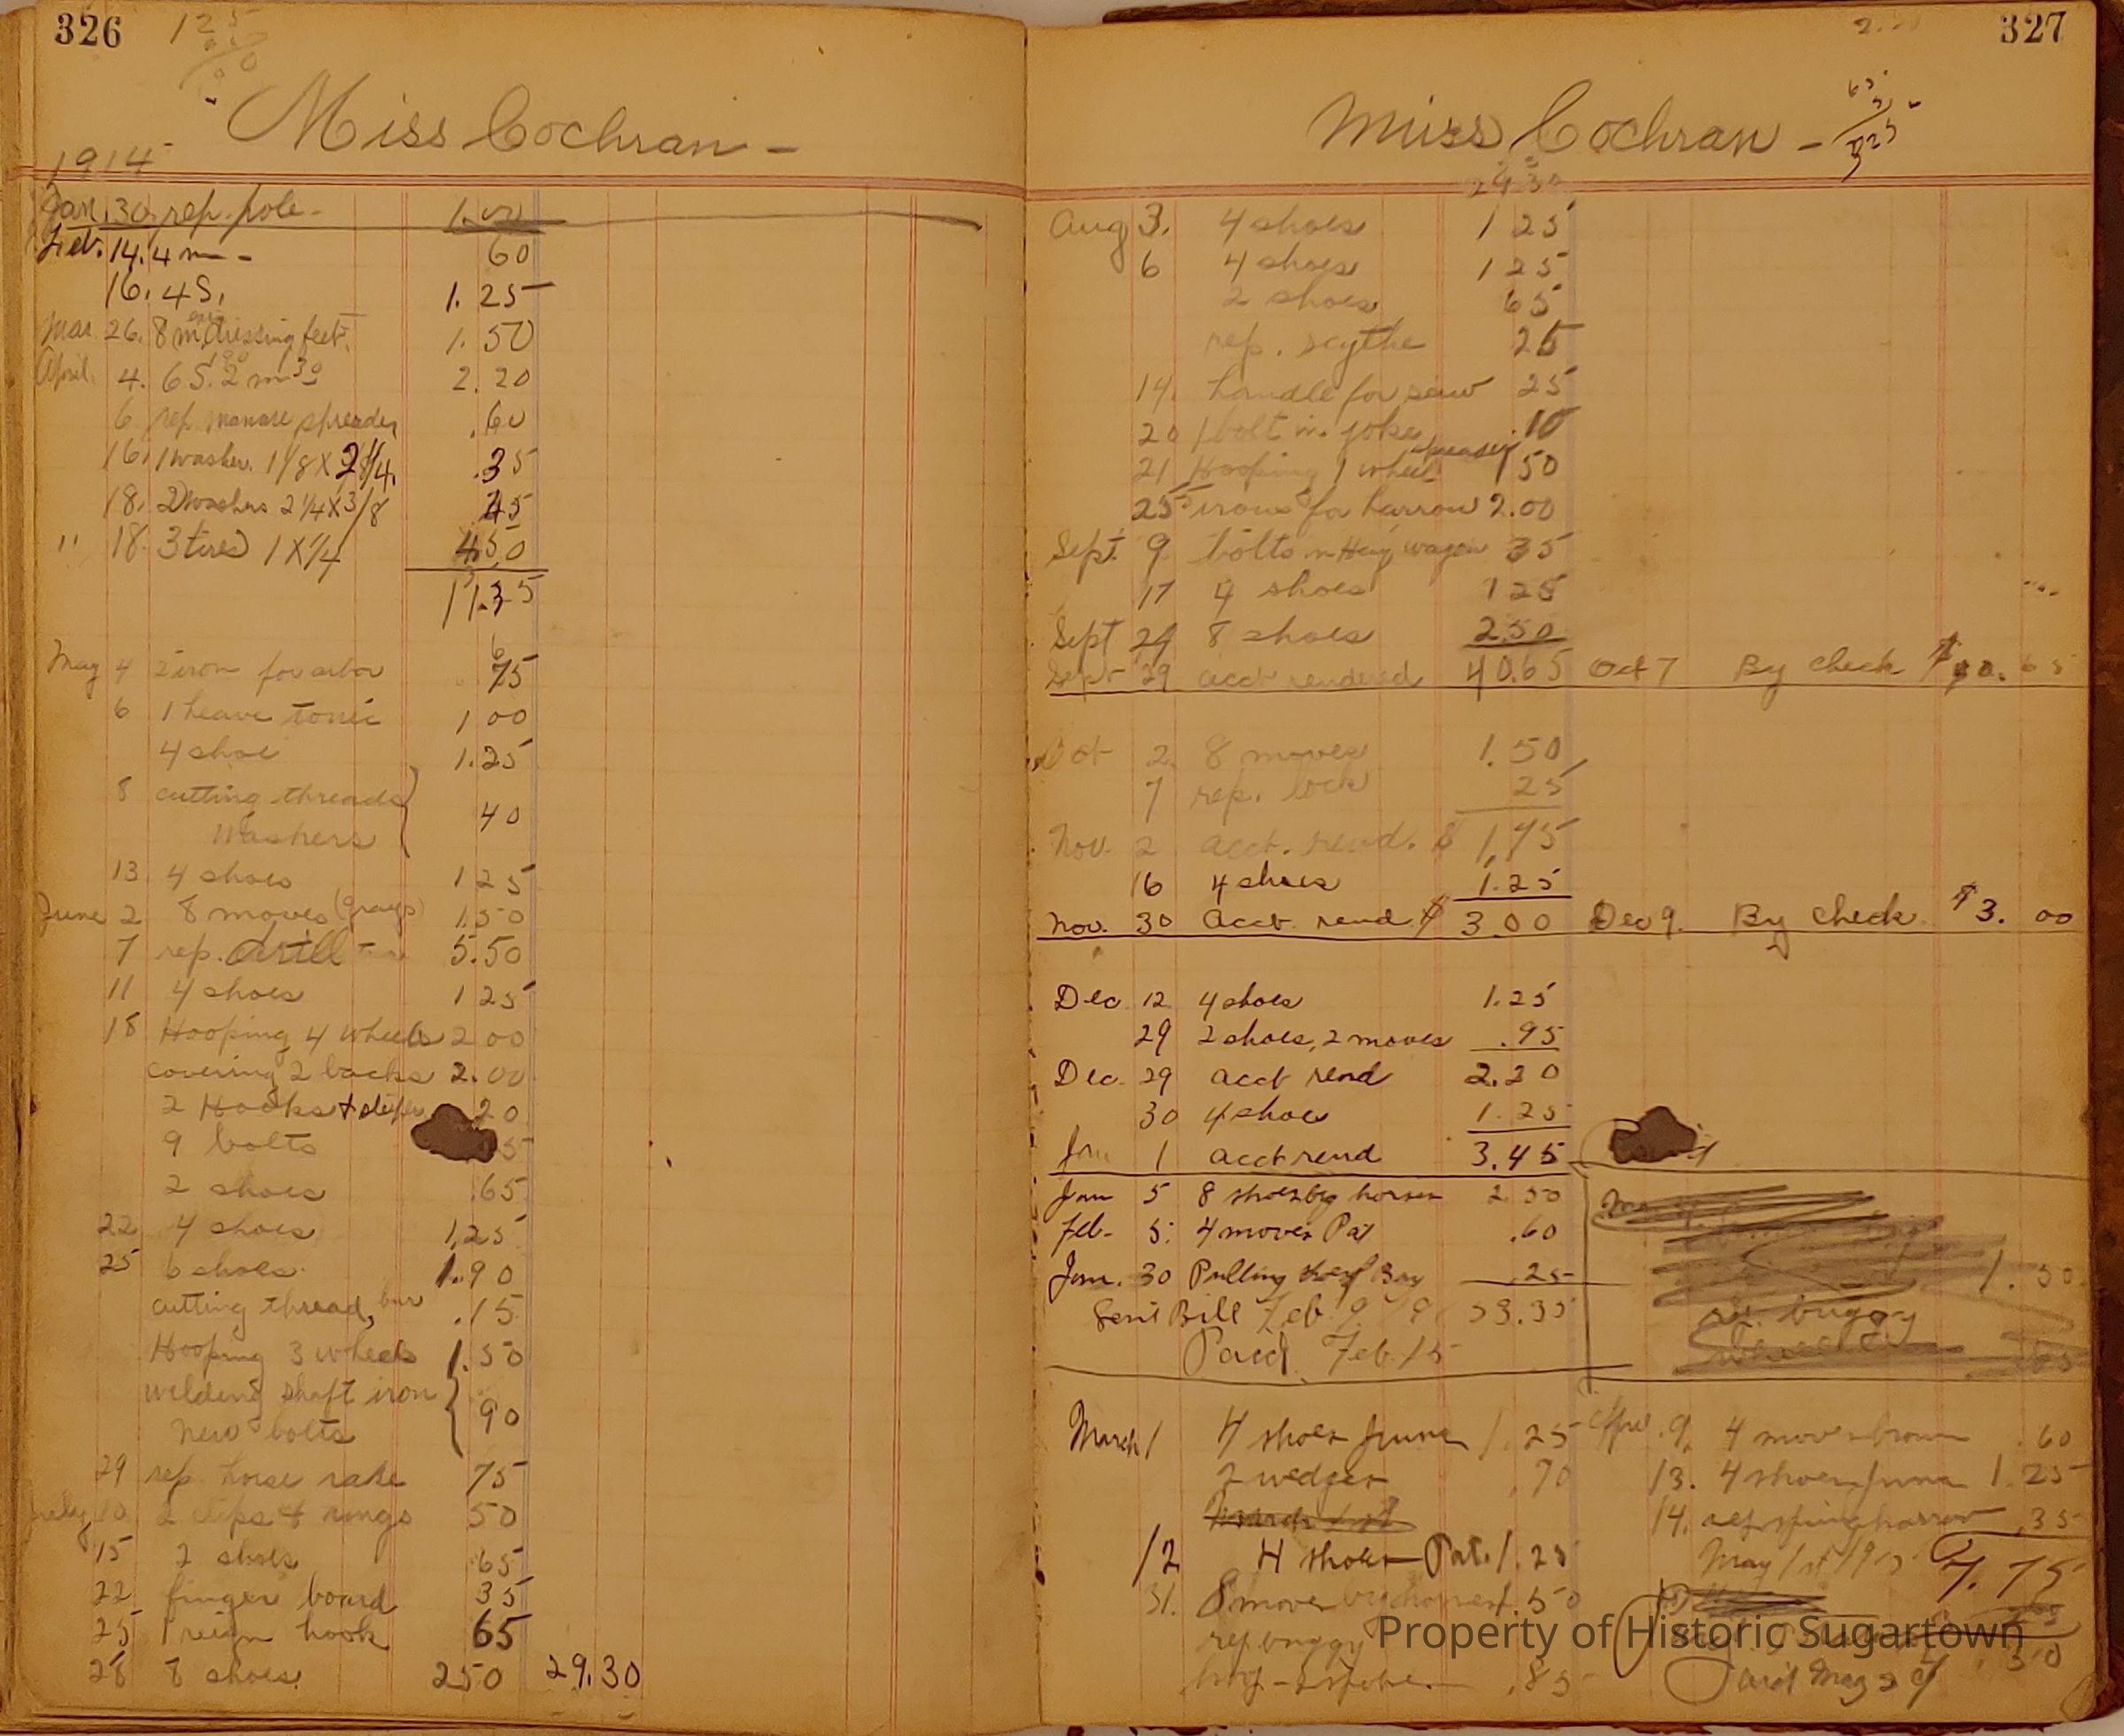 326
Miss Cochran -
1914
Jan. 30. rep. pole - 1.00
Feb. 14. 4 m - 60
16. 4 S. 1.25
Mar. 26. 8 m. dressing feet. 1.50
April. 4. 6 S. 2 m 30 2.20
6 rep. manure spreader .60
16. 1 washer. 1 1/8 X 2 1/4. .35
18. 2 washers 2 1/4 X 3/8 45
" 18. 3 tires 1 X 1/4 4.50
11.35
May 4 iron for arbor 75
6 1 heave tonic 1 00
4 shoe 1.25
8 cutting threads
Washers 40
13 4 shoes 1 25
June 2 8 moves (grays) 1.50
7 rep. drill 5.50
11 4 shoes 1 25
18 Hooping 4 wheels 2 00
covering 2 backs 2.00
2 Hooks + 20
9 bolts
2 shoes .65
22 4 shoes 1.25
25 6 shoes 1.90
cutting thread, bur .15
Hooping 3 wheels 1.50
welding shaft iron
New bolts 90
29 rep. horse rake 75
July 10 2 clips & rings 50
15 2 shoes .65
22 finger board 35
25 1 reign hook 65
28 8 shoes. 2 50 29.30
327
Miss Cochran -
29 30
Aug 3. 4 shoes 1 25
6 4 shoes 1 25
2 shoes 65
rep. scythe 25
14. handle for saw 25
20 1 bolt in yoke .10
21 Hooping 1 wheel 1 50
25 irons for harrow 2.00
Sept. 9 bolts in Hay wagon 35
17 4 shoes 1 25
Sept 29 8 shoes 2.50
Sept 29 acct rendered 40.65 Oct 7 By Check $40.65
Oct 2 8 moves 1.50
7 rep. lock 25
Nov. 2 acct. rend. $ 1.75
16 4 shoes 1.25
Nov. 30 Acct. rend $ 3.00 Dec 9. By Check $3. 00
Dec 12 4 shoes 1.25
29 2 shoes, 2 moves .95
Dec. 29 acct rend 2.20
30 4 shoes 1.25
Jan 1 acct rend 3.45
Jan 5 8 shoes big horses 2.50
Feb. 5. 4 moves Pat .60
Jan. 30 Pulling Bay .25
1.50
Sent Bill Feb. 9
buggy
Paid Feb. 15
March 1 4 shoes June 1.25
2 wedges .70
12 4 shoes Pat. 1.25
31. 8 moves 1.50
rep buggy
.85
9. 4 moves brown .60
13. 4 shoes June 1.25
14. rep spring harrow .35
May 1st 1915 7.75
50
Paid May 29
Property of Historic Sugartown